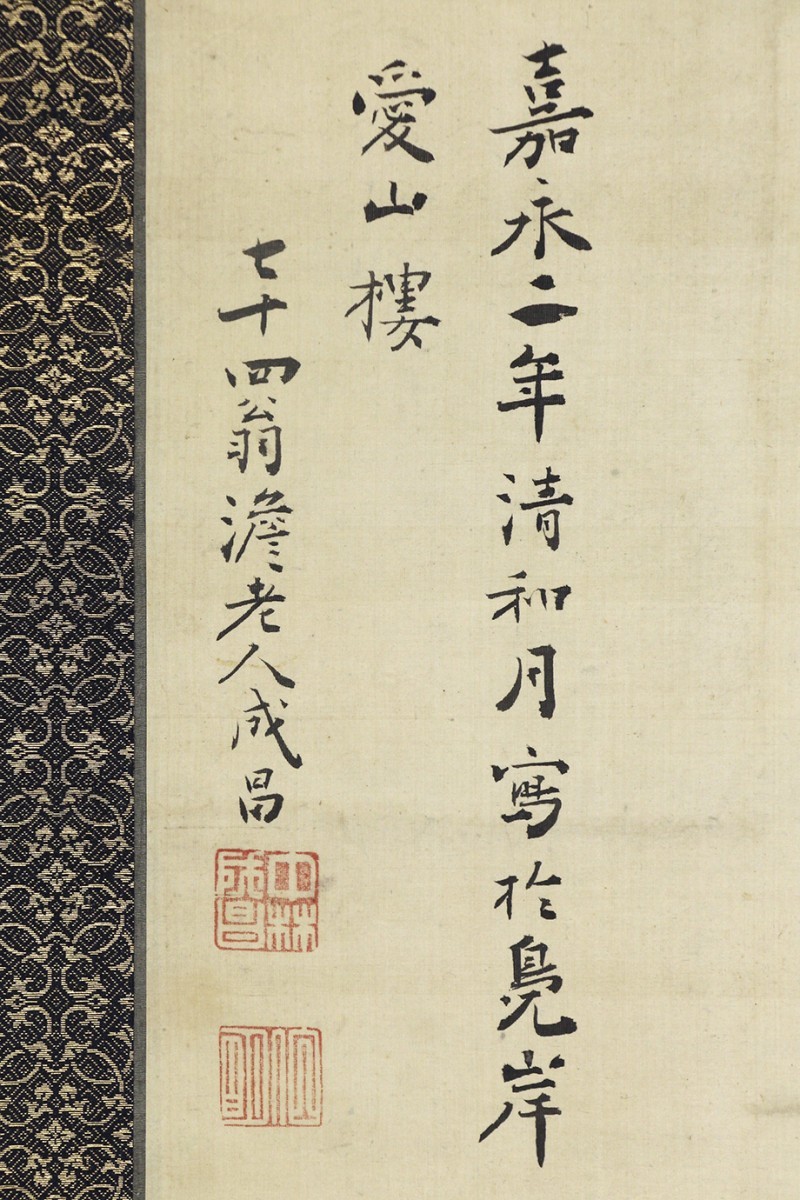 嘉永二年清和月寫於鳧岸
愛山樓
七十四翁澹老人成昌
中林成昌